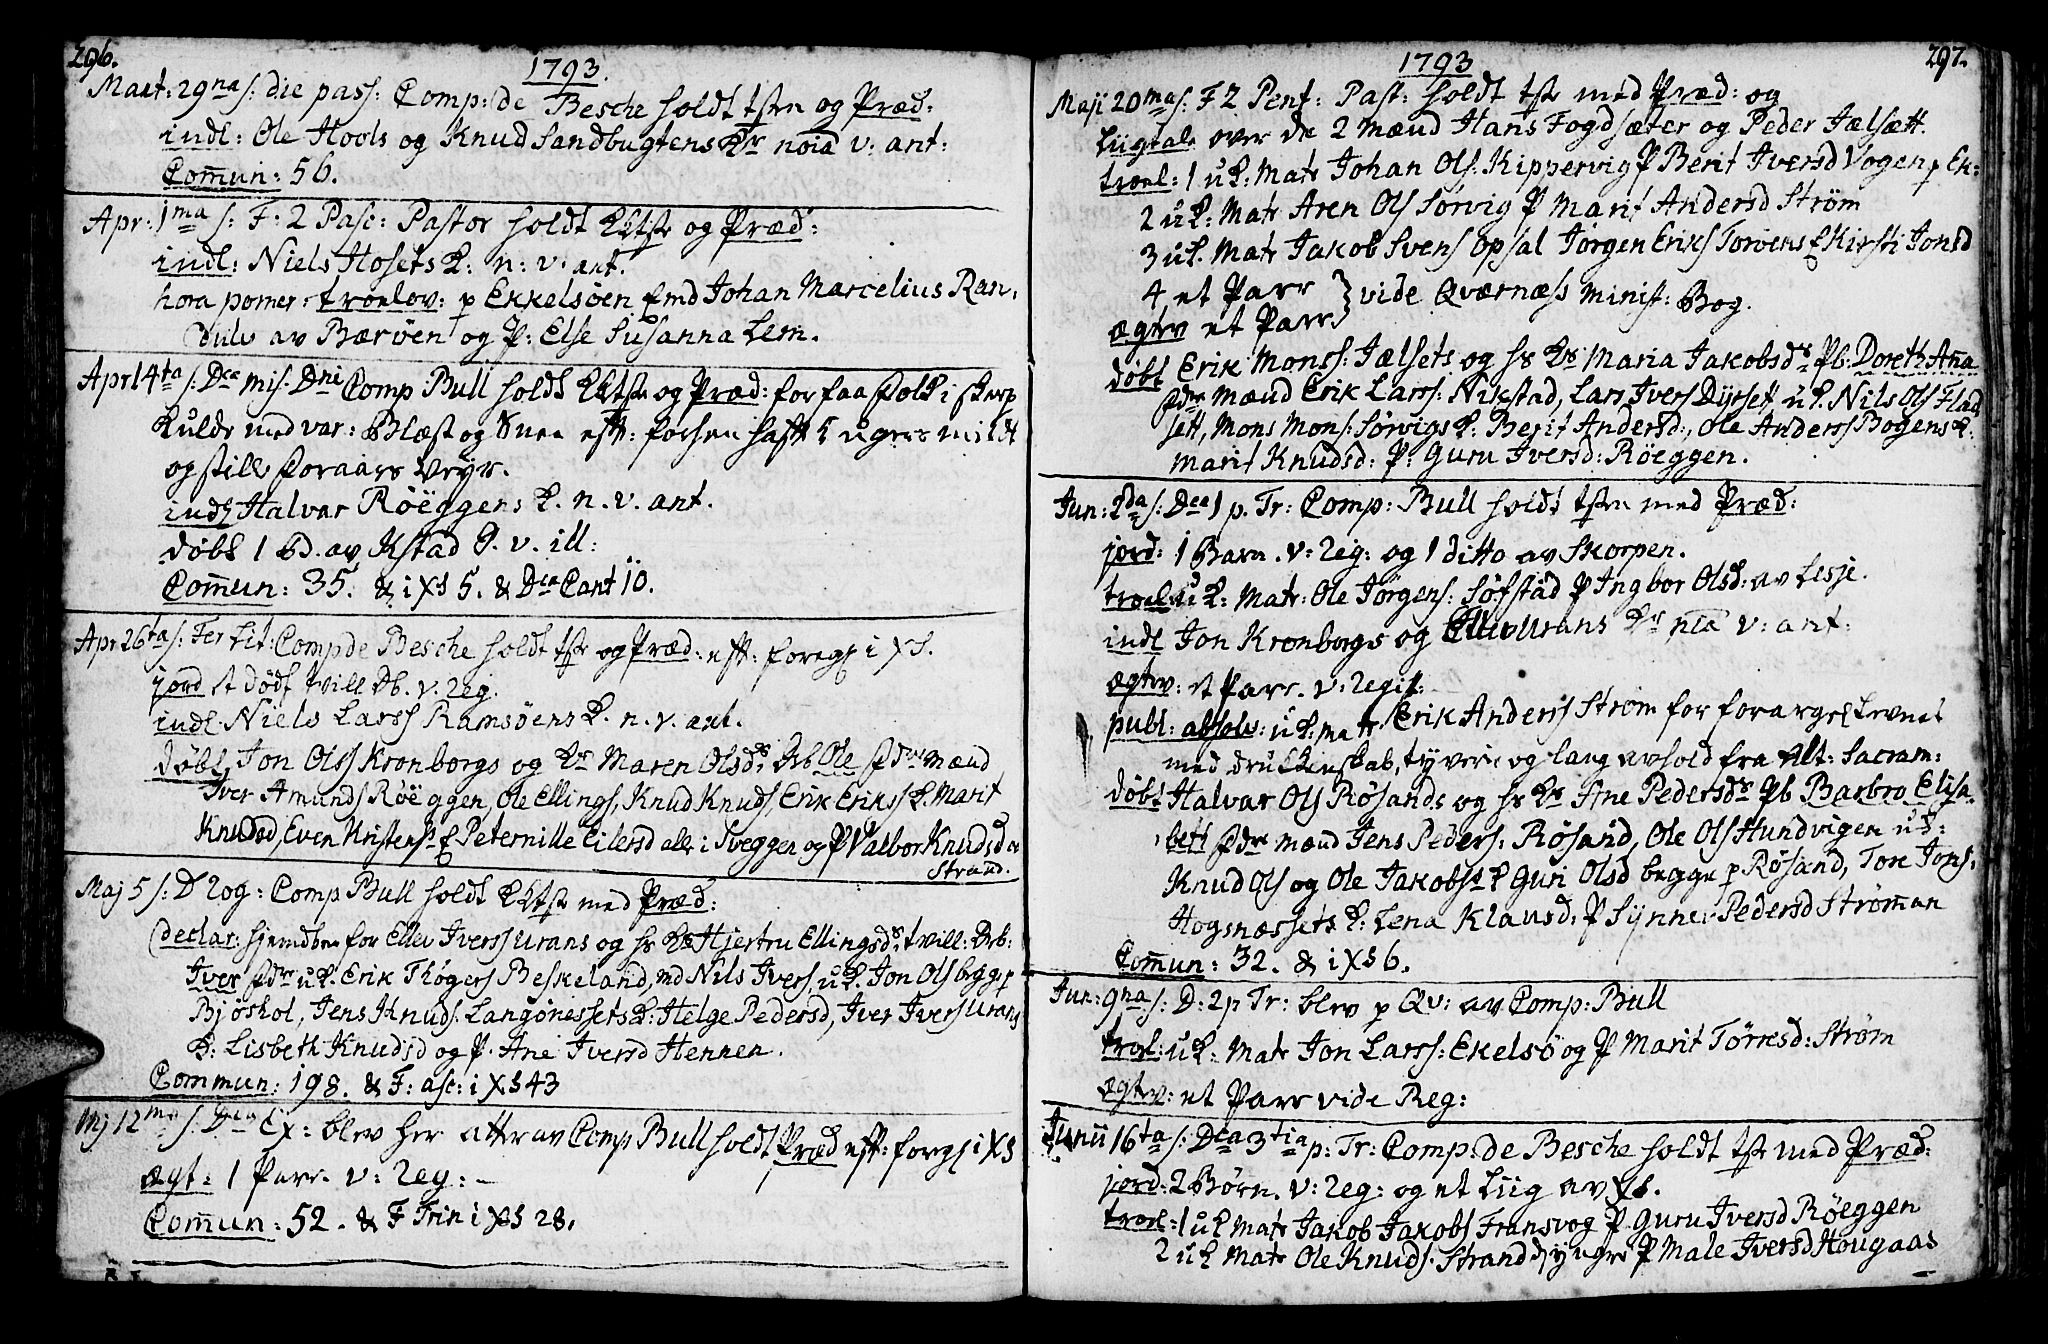 296.
1793.
Mart: 29na s: die pass: Comp: de Besche holdt tstn og Præd:
indl: Ole Hools og Knud Sandbugtens Kr noia v: ant:
Com̄un: 56.
Apr: 1ma s: F: 2 Pasc: Pastor holdt Kltst og Præd:
indl: Niels Hosets K: n: v: ant.
hora pomer: troelov: p Ekkelsöen Emd Johan Marcelius Ran:
duls av Bæröen og P: Else Susanna Lem.
Apr 14ta s: Dca mis: Dni Comp Bull holdt Kltste og Præd: for faa Folk i skarp
kulde med var: Blæst og Snee eft: forhen hafft 5 ugers mildt
og still Foraars Veyr.
indl Halvar Röeggens K. n. v. ant.
döbt 1 B. av Kstad P. v. ill:
Com̄un: 35. & i XS 5. & Dca Cant 10.
Apr 26ta s: Fer Lit: Comp de Besche holdt tste og Præd: eft: foregs i XS.
jord et dödf Will Db. v. Reg.
indl Niels Larss Ramsöens K. n. v. ant.
döbt Jon Olss Kronborgs og Kr Maren Olsdr Drb Ole Fdre mænd
Iver Amunds Röeggen, Ole Ellings, Knud Knuds, Erik Erikss K. Marit
Knudsd, Even Kristens & Peternille Eilersd alle i Sveggen og P Valbor Knudsd
Strand.
Maj 5 s: D Rog: Comp Bull holdt Kltst med Præd:
declar: hjemdben for Ellev Iverss Urans og hs Kr Hjertru Ellingsdr, tvill: Drb:
Iver Fdre uK. Erik Thögers Beskeland, md Nils Ivers, uK. Jon Ols begge p
Bjöskol, Jens Knuds: Langönessets K: Helge Pedersd, Iver Ivers Urans
K: Lisbeth Knudsd og P. Ane Iversd Hennen.
Commun: 198. & F: asc: i XS 43
Mj 12ma s: Dca Ex: blev her atter av Comp Bull holdt Præd eft: foregs i XS
ægt: 1 Parr v: Reg:
Com̄un: 52. & F Trin i XS 28.
297.
1793
Maji 20ma s: F 2 Pent: Past: holdt tste med Præd: og
Liigtale over de 2 mænd Hans Fogdsæter og Peder Jælsætt.
troel: 1 uK: Mate Johan Ols: Kippervig P Berit Iversd Vogen p Ek:
2 uK: Mate Aren Ols Sörvig P Marit Andersd Ström
3 uK. Mate Jakob Svens Opsal Jörgen Eriks Torvens & Kirsti Jonsd
4 et Parr } vide Qværnæss Minist: Bog.
ægtev et Parr
döbt Erik Monss: Jælsets og hs Kr Maria Jakobsdr Pb: Doreth Aña
Fdre mænd Erik Larss: Nikstad, Lars Ivers Dyrset uK. Nils Ols Flad
sett, Mons Mons: Sörvigs K: Berit Andersd:, Ole Anderss Bogens K:
Marit Knudsd: P: Guru Iversd: Röeggen.
Jun: 2da s: Dca 1 p. Tr: Comp: Bull holdt tstn med Præd:
jord: 1 Barn. v: Reg: og 1 ditto av Skorpen.
troel uK: Mate: Ole Jörgens: Söfstad P Ingbor Olsd: av Lesje.
indl Jon Kronborgs og Ellev Urans Kr nia v: ant:
ægtev: et Parr. v: Regist:
publ: absolv: uK: mate Erik Anderss Ström for forargel Levnet
med drukkenskab, tyverie og lang avhold fra Alt: Sacram:
döbt Halvar Ols Rösands og hs Kr Ane Pedersdr Pb Barbro Elisa
bett Fdre mænd Jens Peders: Rösand, Ole Ols Hundvigen uK:
Knud Ols og Ole Jakobs & P Guri Olsd begge p Rösand, Tore Jons:
Hogsnæssets K: Lena Klausd: P Synnev Pedersd Ström̄an
Com̄un: 32. & i XS 6.
Jun: 9na s: D: 2 p Tr: blev p Qv: av Comp: Bull
trol: uK: Mate Jon Larss: Ekelsö og P Marit Törresd: Ström
ægtev: et Parr vide Reg:
Junii 16ta s: Dca 3tia p: Tr: Comp: de Besche holdt tste med Præd:
jord: 2 Börn. v: Reg: og et Liig av XS.
trol: 1 uK Mate Jakob Jakobs Fransvog P Guru Iversd Röeggen
2 uK Mate Ole Knuds: Strand d yngre P Male Iversd Hougaas